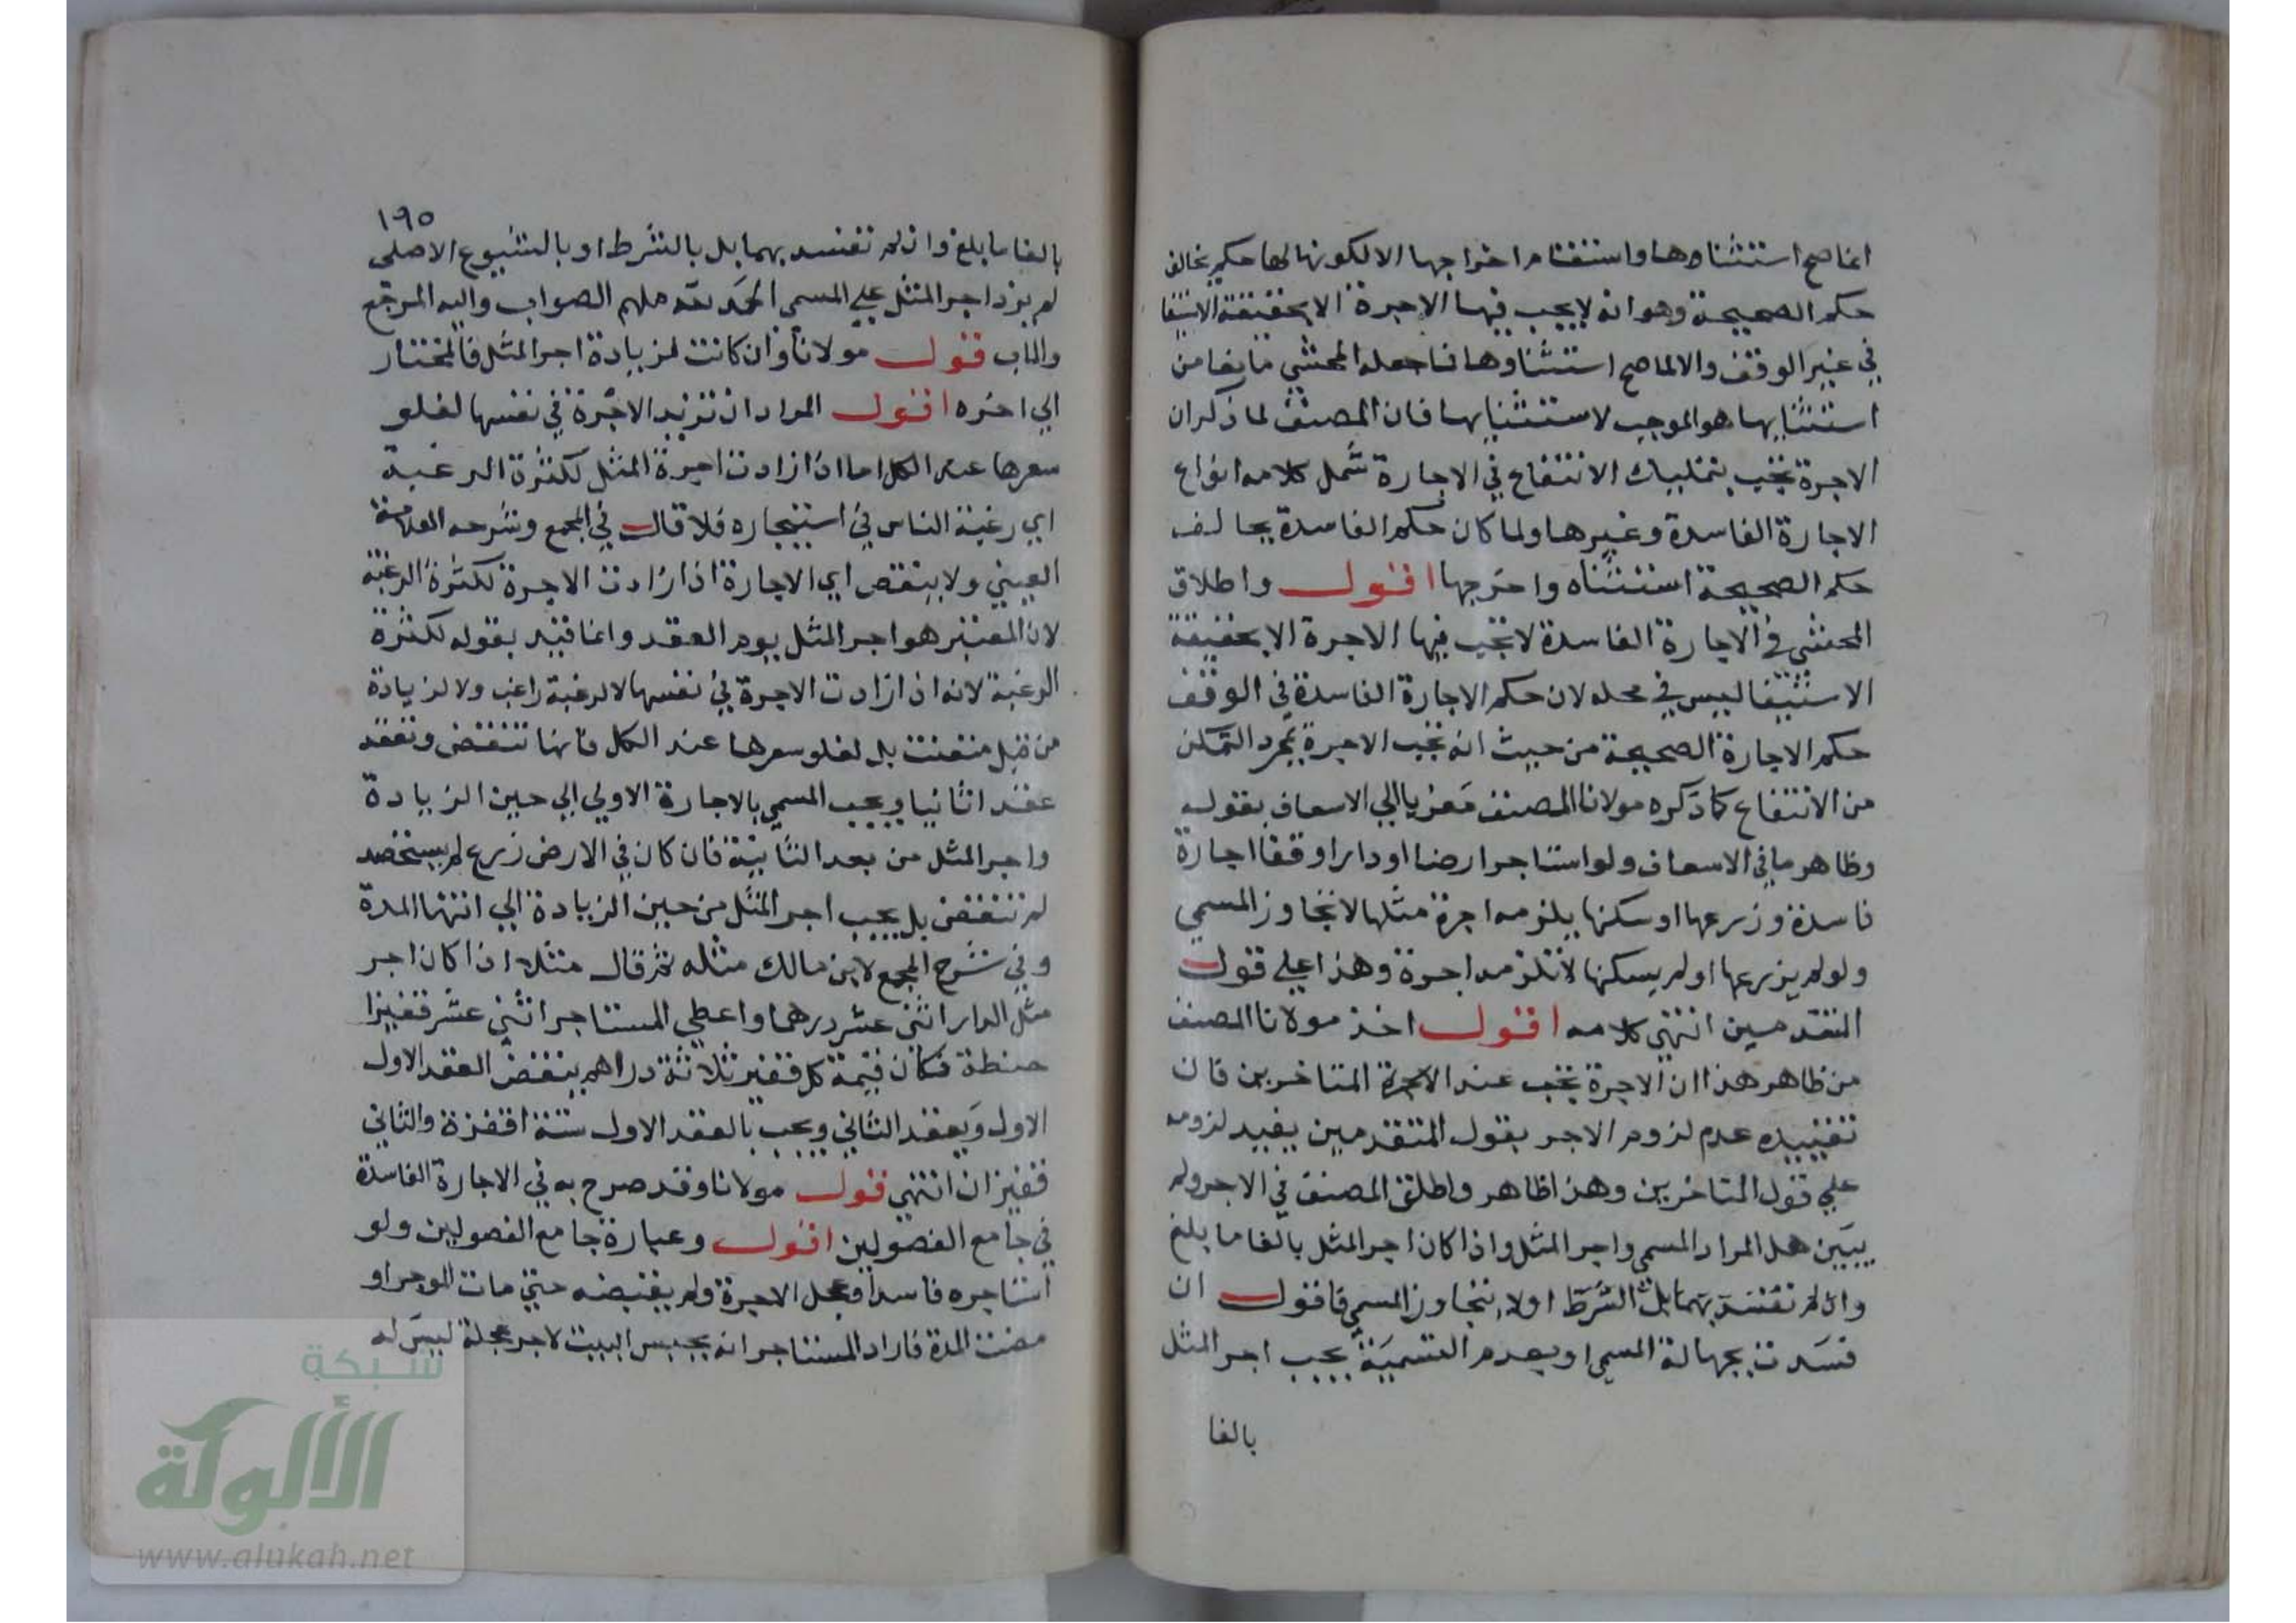 انما صح استثناوها واستقام اخراجها الا لكونها لها حكم يخالف
حكم الصحيحة وهو انه لا يجب فيها الاجرة الا بحقيقة الاستيفا
في غير الوقف والا لما صح استثناوها فما جعله المحشي مانعا من
استثنايها هو الموجب لاستثنايها فان المصنف لما ذكر ان
الاجرة تجب بتمليك الانتفاع في الاجارة شمل كلامه انواع
الاجارة الفاسدة وغيرها ولما كان حكم الفاسدة يخالف
حكم الصحيحة استثناه واخرجها اقول واطلاق
المحشي في الاجارة الفاسدة لا تجب فيها الاجرة الا بحقيقة
الاستيفا ليس في محله لان حكم الاجارة الفاسدة في الوقف
حكم الاجارة الصحيحة من حيث انه تجب الاجرة بمجرد التمكن
من الانتفاع كما ذكره مولانا المصنف معزيا الي الاسعاف بقوله
وظاهر ما في الاسعاف ولو استاجر ارضا او دارا وقفا اجارة
فاسدة وزرعها او سكنها يلزمه اجرة مثلها لا تجاوز المسمي
ولو لم يزرعها او لم يسكنها لا تلزمه اجرة وهذا علي قول
المتقدمين انتهي كلامه اقول اخذ مولانا المصنف
من ظاهر هذا ان الاجرة تجب عند المتاخرين فان
تقييده عدم لزوم الاجر بقول المتقدمين يفيد لزومه
علي قول المتاخرين وهذا ظاهر واطلق المصنف في الاجر ولم
يبين هل المراد المسمي واجر المثل واذا كان اجر المثل بالغا ما بلغ
وان لم تفسد بهما بل الشرط او لا يتجاوز المسمي فاقول ان
فسدت بجهالة المسمي او بعدم التسمية يجب اجر المثل
بالغا
١٩٥
بالغا ما بلغ وان لم تفسد بهما بل بالشرط او بالشيوع الاصلي
لم يزد اجر المثل علي المسمي الحمد لله ملهم الصواب واليه المرجع
والماب قول مولانا وان كانت لزيادة اجر المثل فالمختار
الي اخره اقول المراد ان تزيد الاجرة في نفسها لغلو
سعرها عند الكل اما اذا زادت اجرة المثل لكثرة الرغبة
اي رغبة الناس في استيجاره فلا قال في المجمع وشرحه العلامة
العيني ولا ينتقص اي الاجارة اذا زادت الاجرة لكثرة الرغبة
لان المعتبر هو اجر المثل يوم العقد وانما قيد بقوله لكثرة
الرغبة لانه اذا زادت الاجرة في نفسها لا لرغبة راغب ولا لزيادة
من قبل متعنت بل لغلو سعرها عند الكل فانها تنتقض وتعقد
عقدا ثانيا ويجب المسمي بالاجارة الاولي الي حين الزيادة
واجر المثل من بعد الثانية فان كان في الارض زرع لم يستحصد
لم تنتقض بل يجب اجر المثل من حين الزيادة الي انتها المدة
وفي شرح المجمع لابن مالك مثله ثم قال مثلا اذا كان اجر
مثل الدار اثني عشر درهما واعطي المستاجر اثني عشر قفيزا
حنطة فكان قيمة كل قفيز ثلاثة دراهم ينقض العقد الاول
الاول ويعقد الثاني ويجب بالعقد الاول ستة اقفزة والثاني
قفيزان انتهي قول مولانا وقد صرح به في الاجارة الفاسدة
في جامع الفصولين اقول وعبارة جامع الفصولين ولو
استاجره فاسدا وعجل الاجرة ولم يقبضه حتي مات الموجر او
مضت المدة فاراد المستاجر انه يحبس البيت لاجر عجله ليس له
شبكة
الألوكة
www.alukah.net